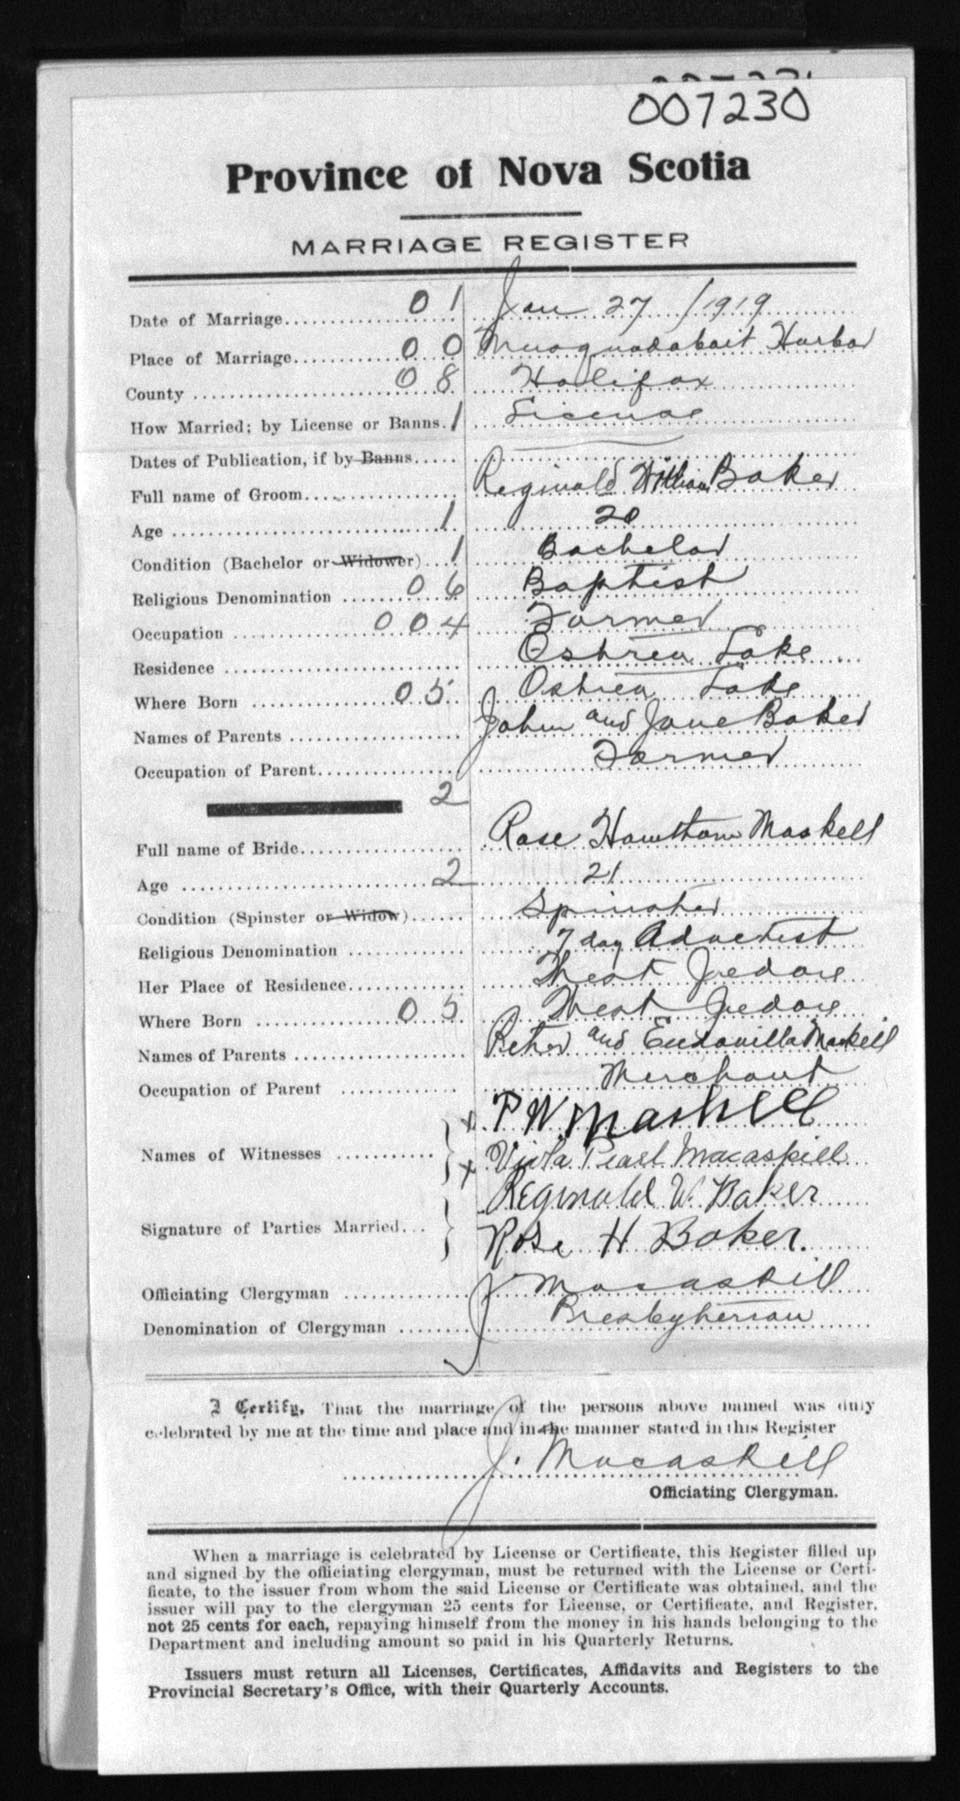 007230
Province of Nova Scotia
MARRIAGE REGISTER
Date of Marriage 0 1 Jan 27 / 1919
Place of Marriage 0 0 Musquodoboit Harbor
County 0 8 Halifax
How Married; by License or Banns. 1 License
Dates of Publication, if by Banns
Full name of Groom Reginald William Baker
Age 1 20
Condition (Bachelor or Widower) 1 Bachelor
Religious Denomination 0 6 Baptist
Occupation 0 0 4 Farmer
Residence Ostrea Lake
Where Born 0 5 Ostrea Lake
Names of Parents John and Jane Baker
Occupation of Parent Farmer
2
Full name of Bride Rose Hawthorn Maskell
Age 2 21
Condition (Spinster or Widow) Spinster
Religious Denomination 7 day Adventist
Her Place of Residence West Jedore
Where Born 0 5 West Jedore
Names of Parents Peter and Maskell
Occupation of Parent Merchant
Names of Witnesses } x P W. Maskell
x Viola Pearl Macaskill
Signature of Parties Married } Reginald W. Baker
Rose H Baker.
Officiating Clergyman J Macaskill
Denomination of Clergyman Presbyterian
I Certify, That the marriage of the persons above named was duly
celebrated by me at the time and place and in the manner stated in this Register
J. Macaskill
Officiating Clergyman.
When a marriage is celebrated by License or Certificate, this Register filled up
and signed by the officiating clergyman, must be returned with the License or Certi-
ficate, to the issuer from whom the said License or Certificate was obtained, and the
issuer will pay to the clergyman 25 cents for License, or Certificate, and Register,
not 25 cents for each, repaying himself from the money in his hands belonging to the
Department and including amount so paid in his Quarterly Returns.
Issuers must return all Licenses, Certificates, Affidavits and Registers to the
Provincial Secretary's Office, with their Quarterly Accounts.